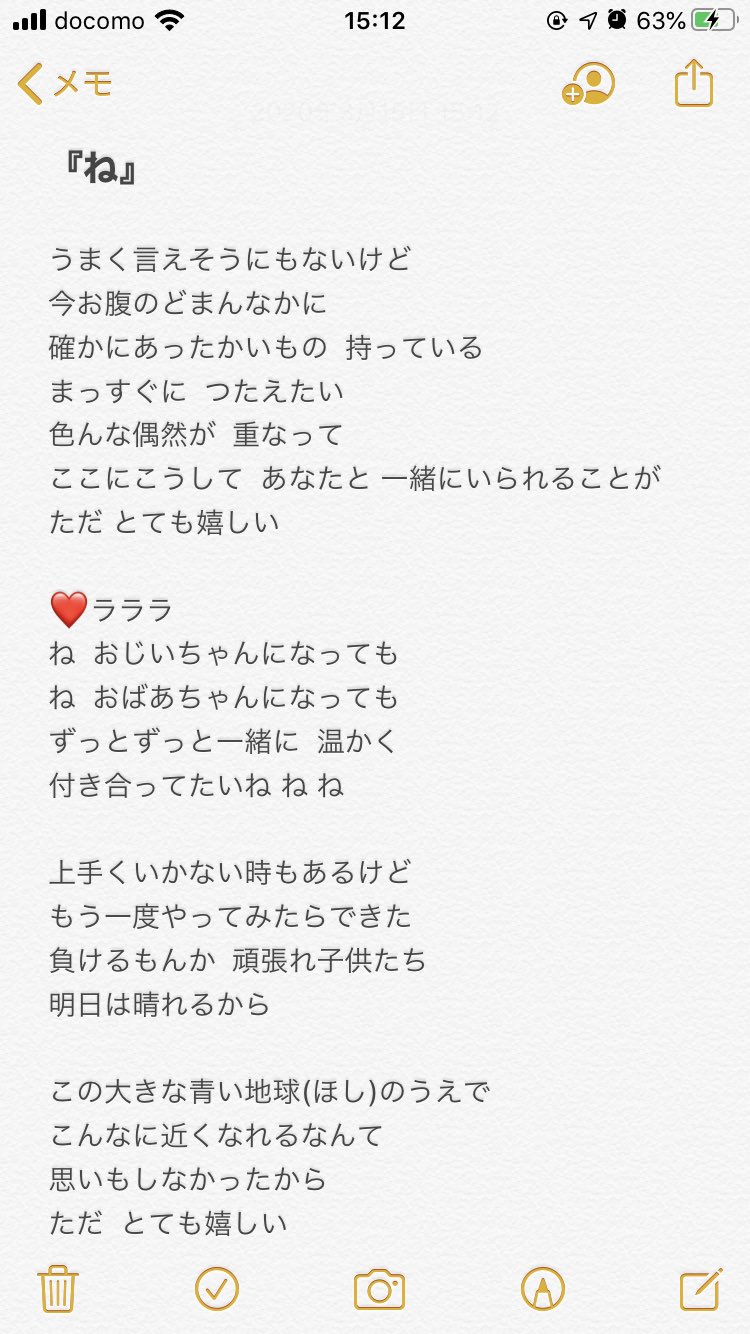 docomo 15:12 63%
メモ
『ね』
うまく言えそうにもないけど
今お腹のどまんなかに
確かにあったかいもの 持っている
まっすぐに つたえたい
色んな偶然が 重なって
ここにこうして あなたと 一緒にいられることが
ただ とても嬉しい
❤️ラララ
ね おじいちゃんになっても
ね おばあちゃんになっても
ずっとずっと一緒に 温かく
付き合ってたいね ね ね
上手くいかない時もあるけど
もう一度やってみたらできた
負けるもんか 頑張れ子供たち
明日は晴れるから
この大きな青い地球(ほし)のうえで
こんなに近くなれるなんて
思いもしなかったから
ただ とても嬉しい